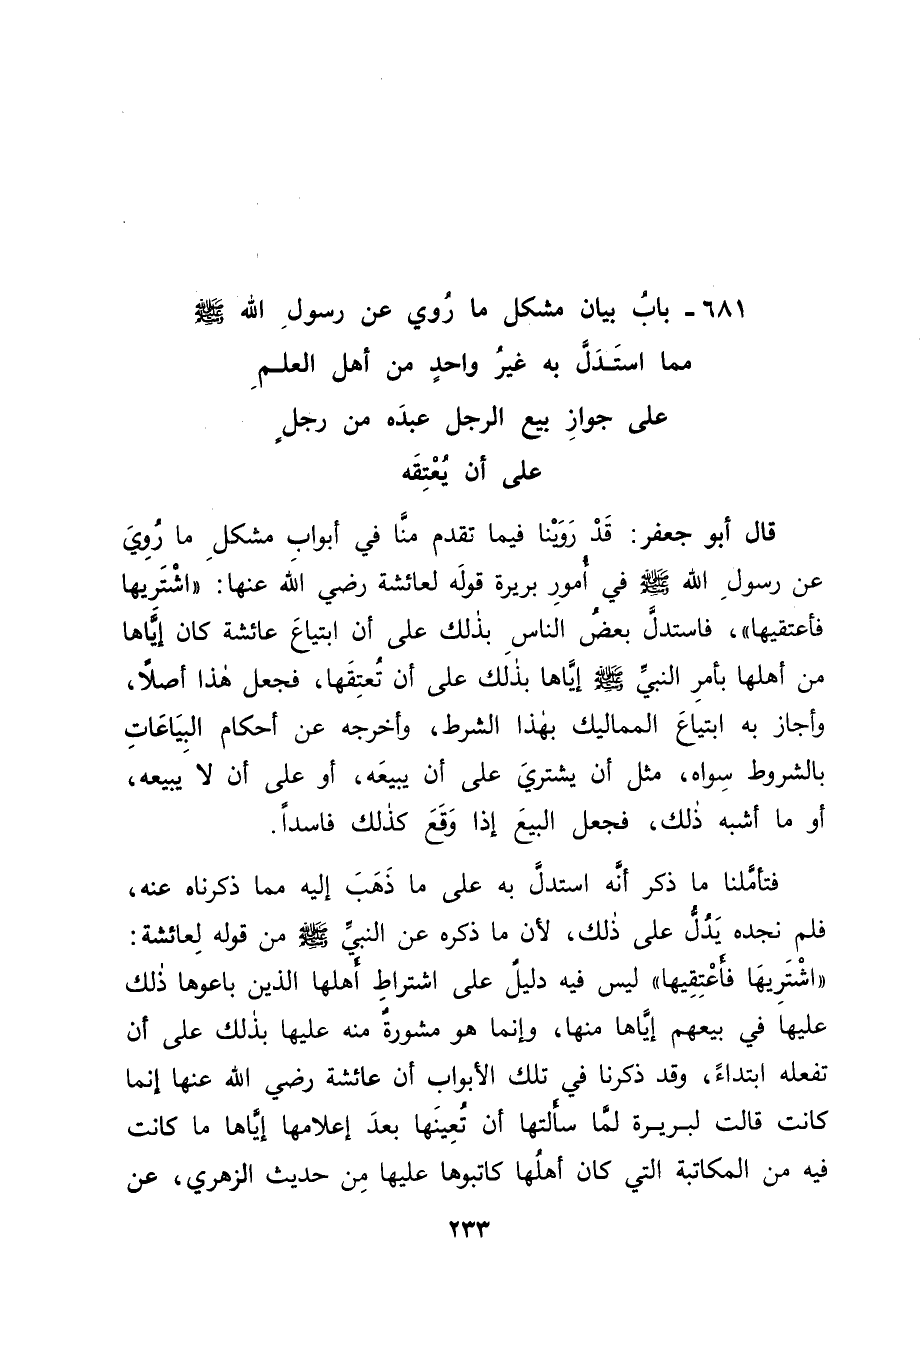 ٦٨١ - بابُ بيان مشكل ما رُوي عن رسولِ الله ﷺ
مما استَدَلَّ به غيرُ واحدٍ من أهل العلمِ
على جوازِ بيع الرجل عبدَه من رجلٍ
على أن يُعْتِقَه
قال أبو جعفر: قَدْ رَوَيْنا فيما تقدم منَّا في أبوابِ مشكلِ ما رُوِيَ
عن رسولِ الله ﷺ في أُمورِ بريرة قولَه لعائشة رضي الله عنها: «اشْتَرِيها
فأعتقيها»، فاستدلَّ بعضُ الناسِ بذٰلك على أن ابتياعَ عائشة كان إيَّاها
من أهلها بأمرِ النبيِّ ﷺ إيَّاها بذٰلك على أن تُعتِقَها، فجعل هٰذا أصلاً،
وأجاز به ابتياعَ المماليك بهٰذا الشرط، وأخرجه عن أحكام البِيَاعَاتِ
بالشروط سِواه، مثل أن يشتريَ على أن يبيعَه، أو على أن لا يبيعه،
أو ما أشبه ذٰلك، فجعل البيعَ إذا وَقَعَ كذٰلك فاسداً.
فتأمَّلنا ما ذكر أنَّه استدلَّ به على ما ذَهَبَ إليه مما ذكرناه عنه،
فلم نجده يَدُلُّ على ذٰلك، لأن ما ذكره عن النبيِّ ﷺ من قوله لِعائشة:
«اشْتَرِيهَا فأَعْتِقِيها» ليس فيه دليلٌ على اشتراطِ أهلها الذين باعوها ذٰلك
عليها في بيعهم إيَّاها منها، وإنما هو مشورةٌ منه عليها بذٰلك على أن
تفعله ابتداءً، وقد ذكرنا في تلك الأبواب أن عائشة رضي الله عنها إنما
كانت قالت لبريرة لمَّا سأَلتها أن تُعِينَها بعدَ إعلامها إيَّاها ما كانت
فيه من المكاتبة التي كان أهلُها كاتبوها عليها مِن حديث الزهري، عن
٢٣٣